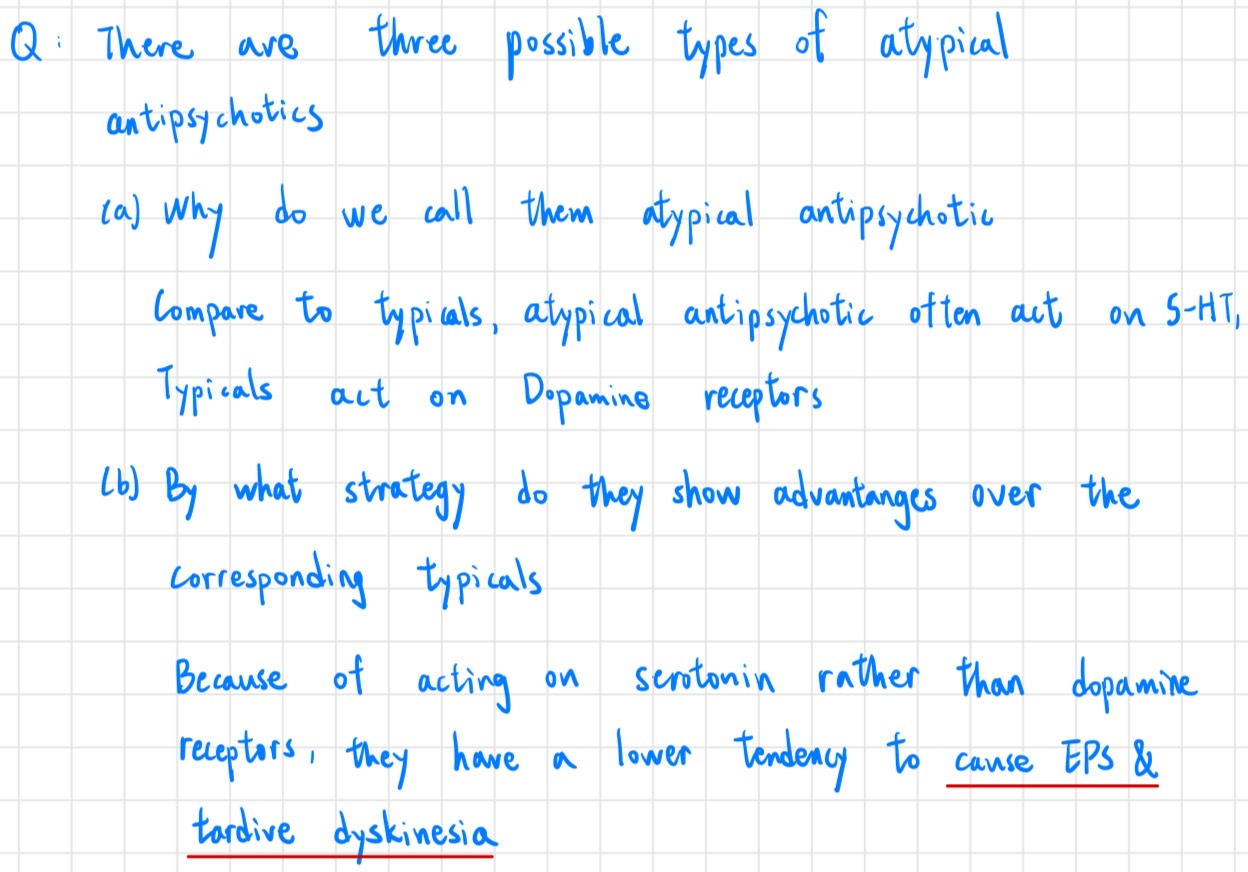 Q: There are three possible types of atypical
antipsychotics
(a) Why do we call them atypical antipsychotic
Compare to typicals, atypical antipsychotic often act on 5-HT,
Typicals act on Dopamine receptors
(b) By what strategy do they show advantanges over the
corresponding typicals
Because of acting on serotonin rather than dopamine
receptors, they have a lower tendency to cause EPS &
tardive dyskinesia